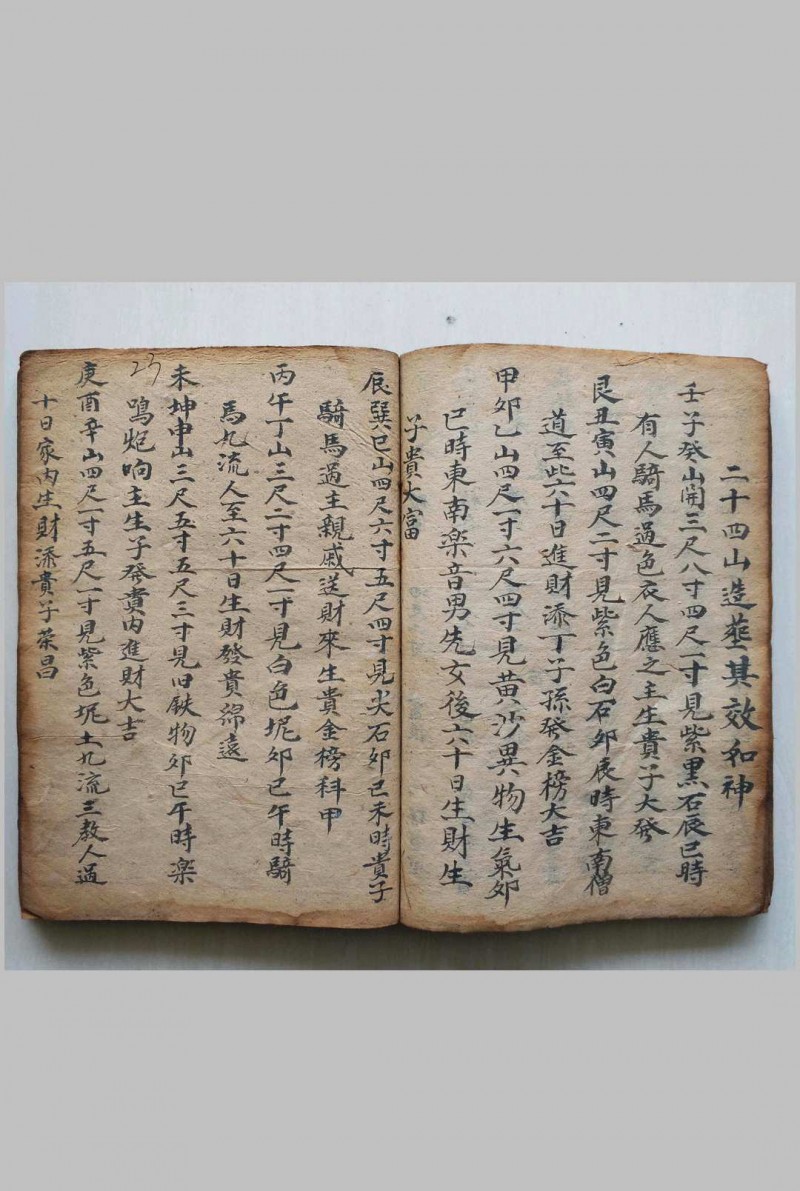 二十四山造塟其效和神
壬子癸山開三尺八寸四尺一寸見紫黑石辰巳時
有人騎馬過色衣人應之主生貴子大發
艮丑寅山四尺二寸見紫色白石卯辰時東南僧
道至此六十日進財添丁子孫發金榜大吉
甲卯乙山四尺一寸六尺四寸見黄沙異物生氣卯
巳時東南楽音男先女後六十日生財生
子貴大富
辰巽巳山四尺六寸五尺四寸見尖石卯巳未時貴子
騎馬過主親戚送財來生貴金榜科甲
丙午丁山三尺二寸四尺一寸見白色坭卯巳午時騎
馬九流人至六十日生財發貴綿遠
未坤申山三尺五寸五尺三寸見旧鉄物卯巳午時楽
鳴炮响主生子發貴内進財大吉
23
庚酉辛山四尺一寸五尺一寸見紫色坭土九流三教人過
十日家内生財添貴子荣昌